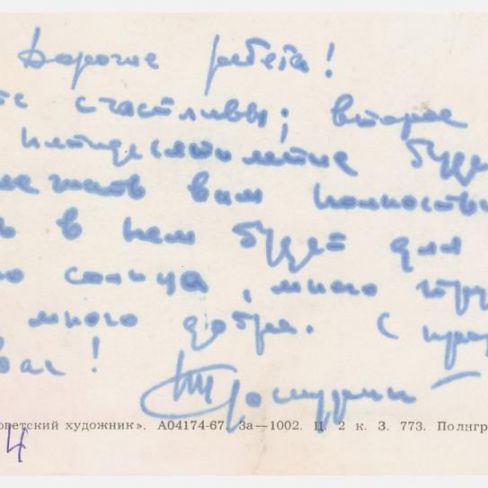 Дорогие ребята!
те счастливы; второе
пятидесятилетие буде
лежать вам полностью
ь в нем будет для
го солнца, много
много добра. С пра
вас!
оветский художник». А04174-67. За—1002. Ц. 2 к. З. 773. Полигр
4